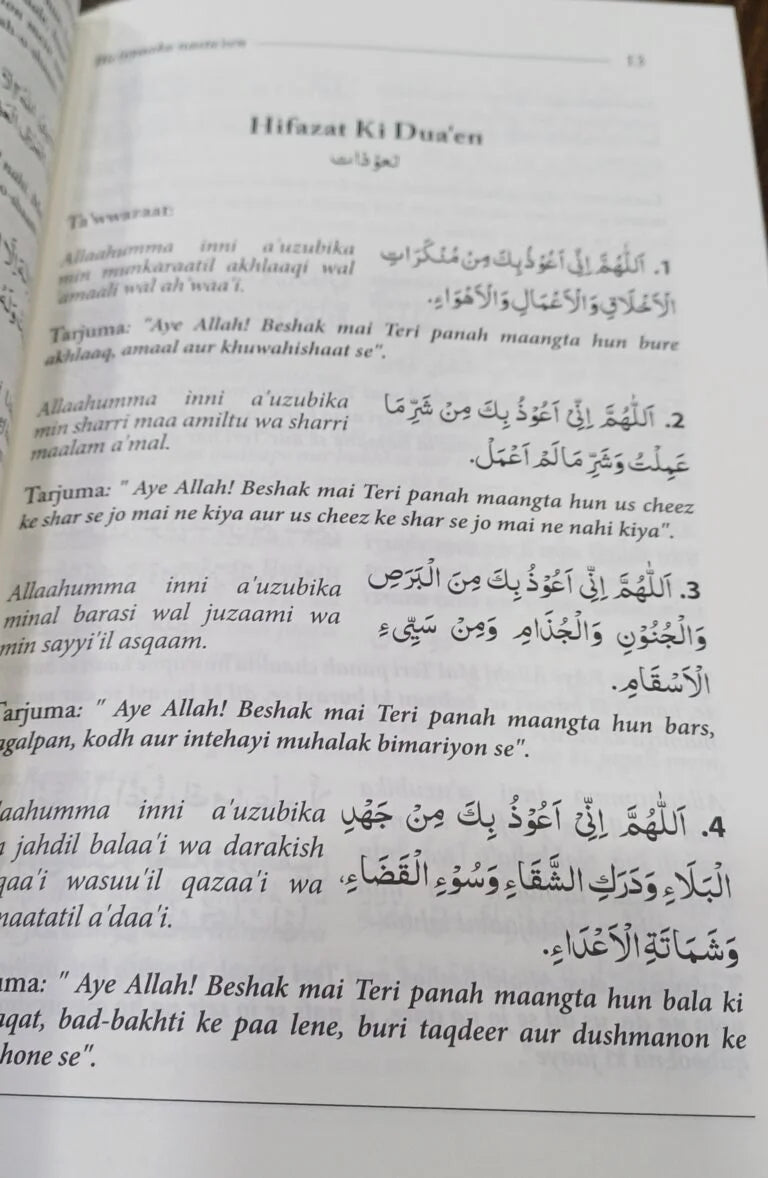 13
Hifazat Ki Dua'en
تعوذات
Ta'wwaraat:
Allaahumma inni a'uzubika
min munkaraatil akhlaaqi wal
amaali wal ah'waa'i.
1. اَللّٰهُمَّ اِنِّیْ اَعُوْذُ بِكَ مِنْ مُنْكَرَاتِ
الْاَخْلَاقِ وَالْاَعْمَالِ وَالْاَهْوَاءِ.
Tarjuma: "Aye Allah! Beshak mai Teri panah maangta hun bure
akhlaaq, amaal aur khuwahishaat se".
Allaahumma inni a'uzubika
min sharri maa amiltu wa sharri
maalam a'mal.
2. اَللّٰهُمَّ اِنِّیْ اَعُوْذُ بِكَ مِنْ شَرِّ مَا
عَمِلْتُ وَشَرِّ مَالَمْ اَعْمَلْ.
Tarjuma: " Aye Allah! Beshak mai Teri panah maangta hun us cheez
ke shar se jo mai ne kiya aur us cheez ke shar se jo mai ne nahi kiya".
Allaahumma inni a'uzubika
minal barasi wal juzaami wa
min sayyi'il asqaam.
3. اَللّٰهُمَّ اِنِّیْ اَعُوْذُ بِكَ مِنَ الْبَرَصِ
وَالْجُنُوْنِ وَالْجُذَامِ وَمِنْ سَیِّیءِ
الْاَسْقَامِ.
Tarjuma: " Aye Allah! Beshak mai Teri panah maangta hun bars,
agalpan, kodh aur intehayi muhalak bimariyon se".
laahumma inni a'uzubika
jahdil balaa'i wa darakish
qaa'i wasuu'il qazaa'i wa
maatatil a'daa'i.
4. اَللّٰهُمَّ اِنِّیْ اَعُوْذُ بِكَ مِنْ جَهْدِ
الْبَلَاءِ وَدَرَكِ الشَّقَاءِ وَسُوْءِ الْقَضَاءِ،
وَشَمَاتَةِ الْاَعْدَاءِ.
uma: " Aye Allah! Beshak mai Teri panah maangta hun bala ki
aqat, bad-bakhti ke paa lene, buri taqdeer aur dushmanon ke
hone se".